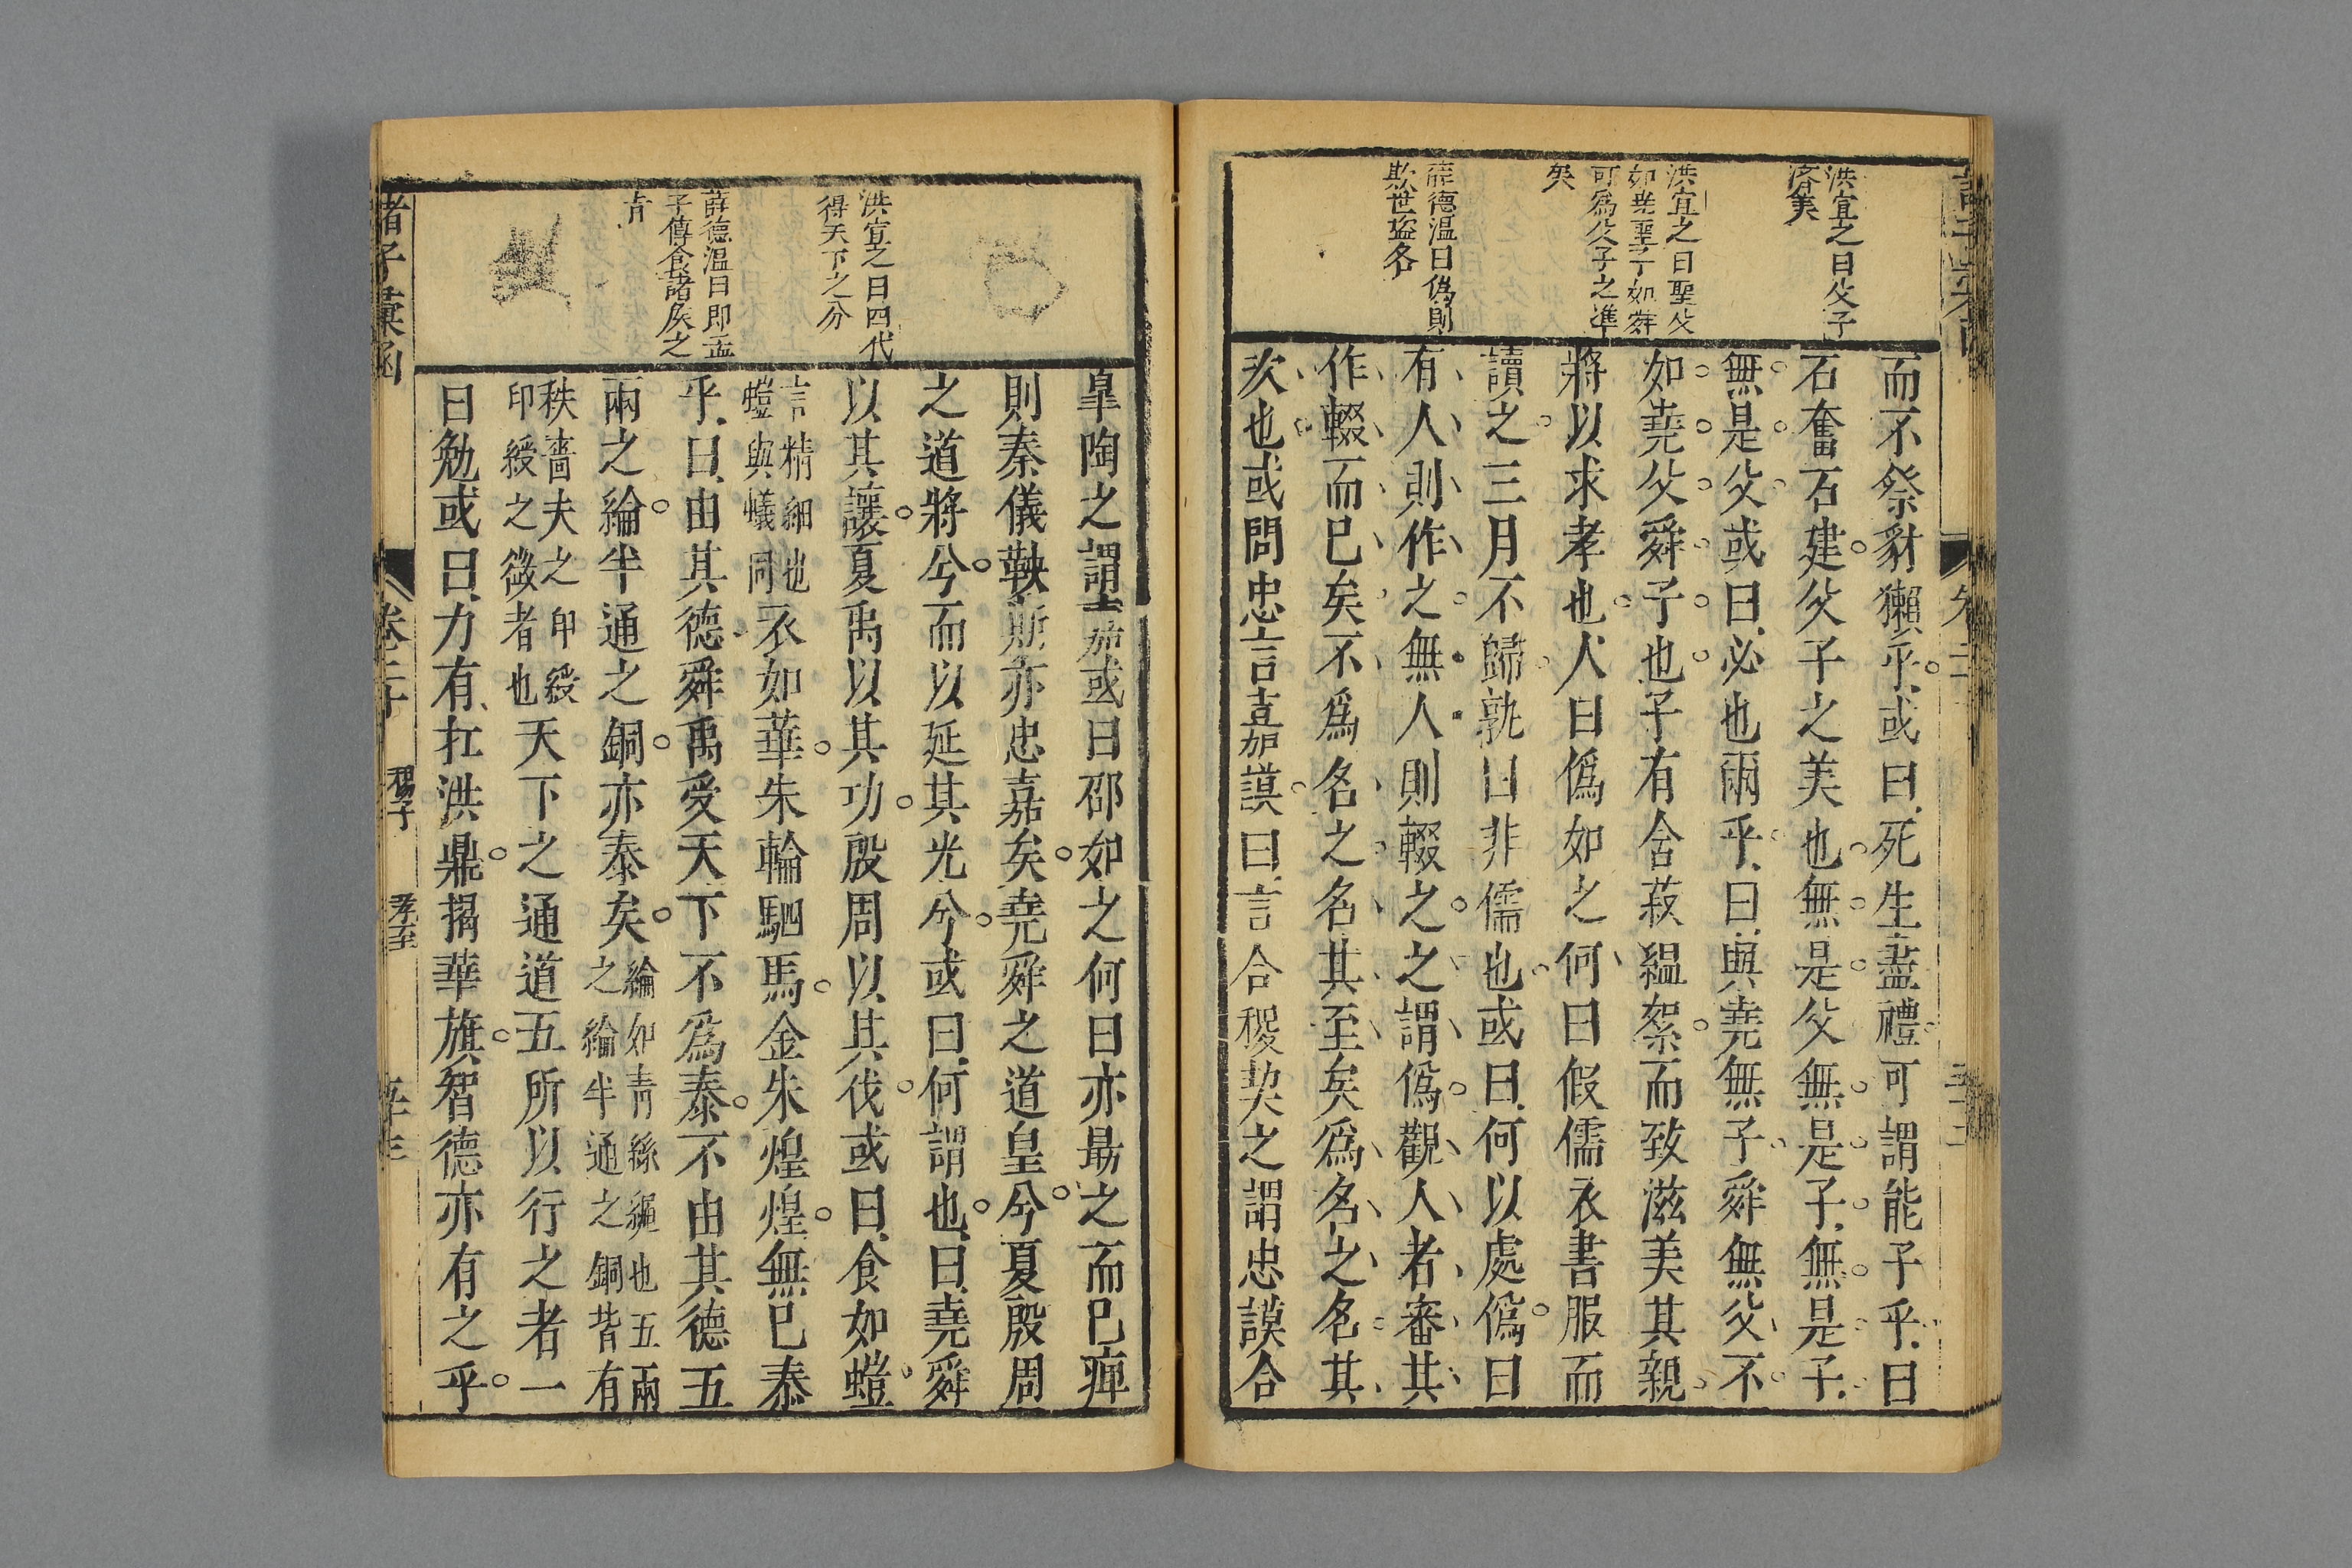 洪宜之曰父子
濟美
洪宜之曰聖父
如堯聖子如舜
可為父子之準
矣
薛德溫曰偽則
欺世盜名
而不祭豺獺乎或曰死生盡禮可謂能子乎曰
石奮石建父子之美也無是父無是子無是子
無是父或曰必也兩乎曰與堯無子舜無父不
如堯父舜子也子有含菽縕絮而致滋美其親
將以求孝也人曰偽如之何曰假儒衣書服而
讀之三月不歸孰曰非儒也或曰何以處偽曰
有人則作之無人則輟之之謂偽觀人者審其
作輟而已矣不為名之名其至矣為名之名其
次也或問忠言嘉謨曰言合稷契之謂忠謨合
洪宜之曰四代
得天下之分
薛德溫曰即孟
子傳食諸侯之
旨
皐陶之謂嘉或曰邵如之何曰亦勗之而已痺
則秦儀鞅斯亦忠嘉矣堯舜之道皇兮夏殷周
之道將兮而以延其光兮或曰何謂也曰堯舜
以其讓夏禹以其功殷周以其伐或曰食如螘
言精細也
螘與蟻同
衣如華朱輪駟馬金朱煌煌無已泰
乎曰由其德舜禹受天下不為泰不由其德五
兩之綸半通之銅亦泰矣
綸如青絲繩也五兩
之綸半通之銅皆有
秩嗇夫之印綬
印綬之微者也
天下之通道五所以行之者一
曰勉或曰力有扛洪鼎揭華旗智德亦有之乎
諸子彙函
卷二十
楊子
孝至